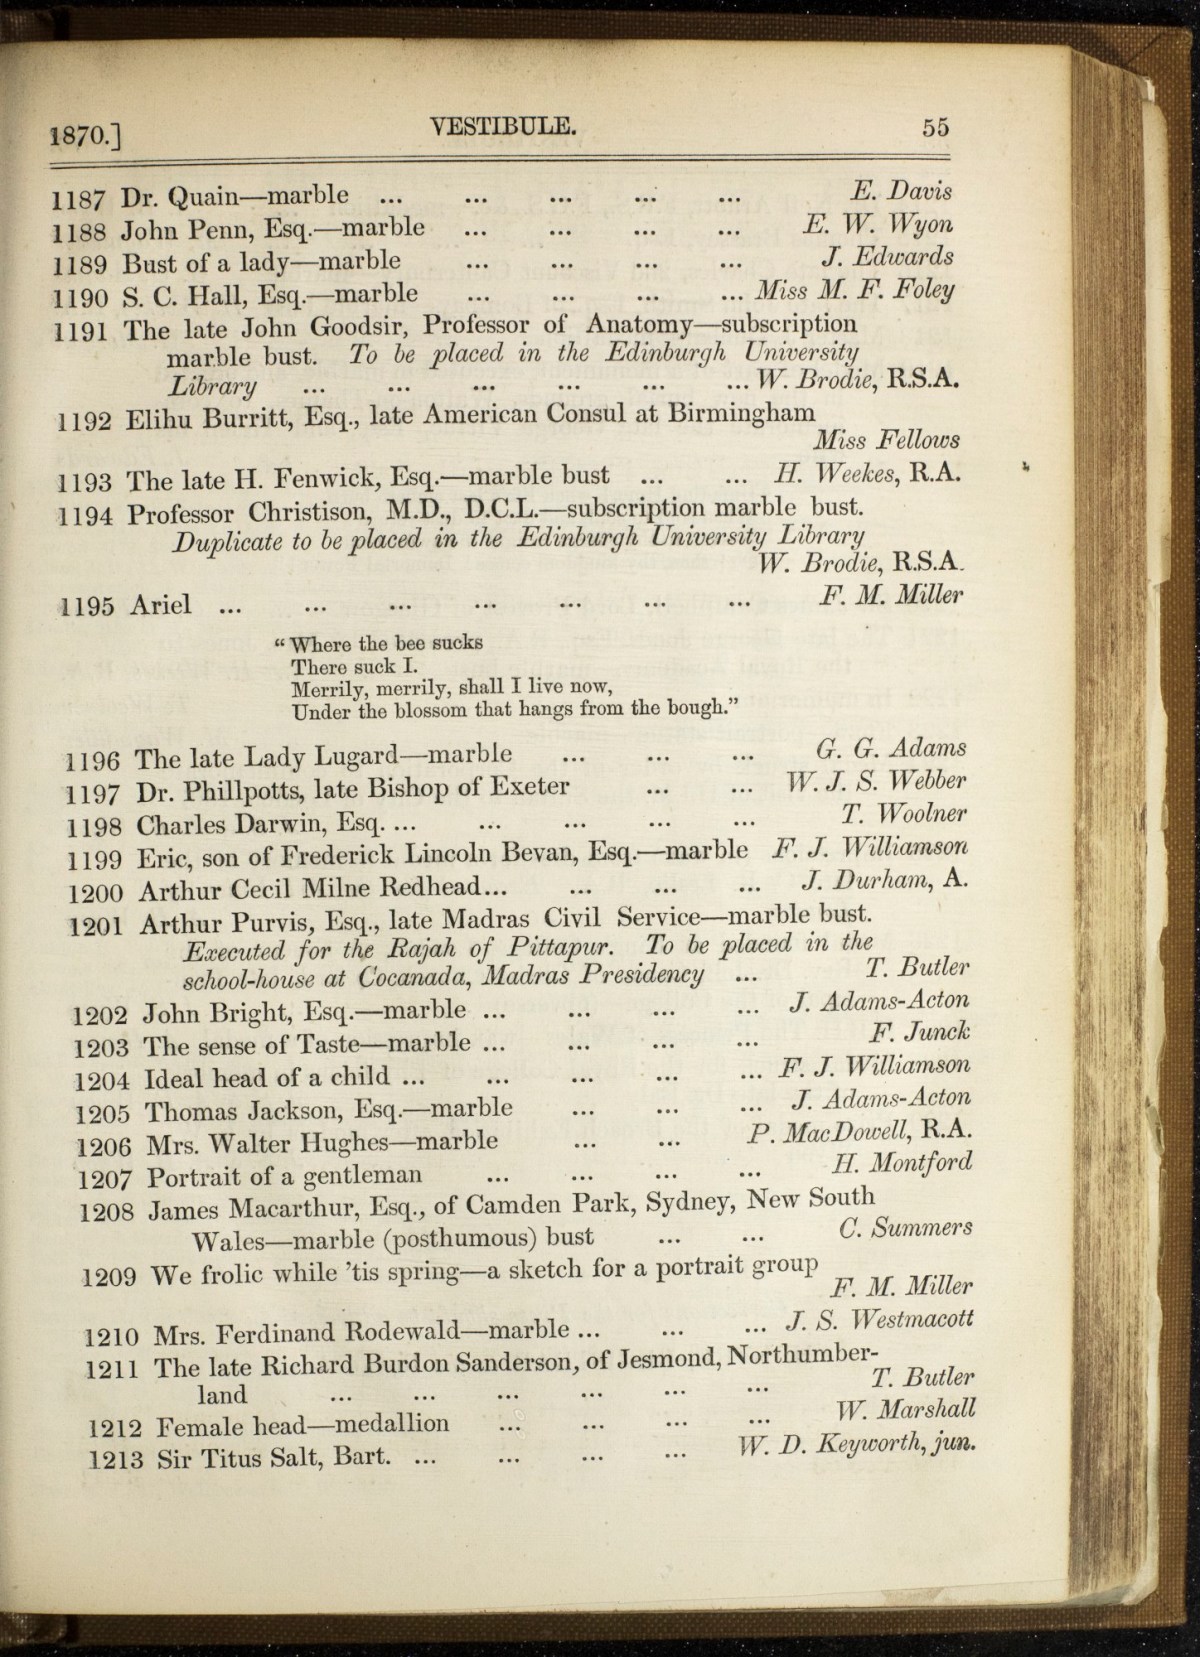 1870.] VESTIBULE. 55
1187 Dr. Quain—marble ... ... ... ... ... E. Davis
1188 John Penn, Esq.—marble ... ... ... ... E. W. Wyon
1189 Bust of a lady—marble ... ... ... ... J. Edwards
1190 S. C. Hall, Esq.—marble ... ... ... ... Miss M. F. Foley
1191 The late John Goodsir, Professor of Anatomy—subscription
marble bust. To be placed in the Edinburgh University
Library ... ... ... ... ... ... W. Brodie, R.S.A.
1192 Elihu Burritt, Esq., late American Consul at Birmingham
Miss Fellows
1193 The late H. Fenwick, Esq.—marble bust ... ... H. Weekes, R.A.
1194 Professor Christison, M.D., D.C.L.—subscription marble bust.
Duplicate to be placed in the Edinburgh University Library
W. Brodie, R.S.A.
1195 Ariel ... ... ... ... ... ... ... F. M. Miller
“Where the bee sucks
There suck I.
Merrily, merrily, shall I live now,
Under the blossom that hangs from the bough.”
1196 The late Lady Lugard—marble ... ... ... G. G. Adams
1197 Dr. Phillpotts, late Bishop of Exeter ... ... W. J. S. Webber
1198 Charles Darwin, Esq. ... ... ... ... ... T. Woolner
1199 Eric, son of Frederick Lincoln Bevan, Esq.—marble F. J. Williamson
1200 Arthur Cecil Milne Redhead... ... ... ... J. Durham, A.
1201 Arthur Purvis, Esq., late Madras Civil Service—marble bust.
Executed for the Rajah of Pittapur. To be placed in the
school-house at Cocanada, Madras Presidency ... T. Butler
1202 John Bright, Esq.—marble ... ... ... ... J. Adams-Acton
1203 The sense of Taste—marble ... ... ... ... F. Junck
1204 Ideal head of a child ... ... ... ... ... F. J. Williamson
1205 Thomas Jackson, Esq.—marble ... ... ... J. Adams-Acton
1206 Mrs. Walter Hughes—marble ... ... P. MacDowell, R.A.
1207 Portrait of a gentleman ... ... ... ... H. Montford
1208 James Macarthur, Esq., of Camden Park, Sydney, New South
Wales—marble (posthumous) bust ... ... C. Summers
1209 We frolic while ’tis spring—a sketch for a portrait group
F. M. Miller
1210 Mrs. Ferdinand Rodewald—marble ... ... ... J. S. Westmacott
1211 The late Richard Burdon Sanderson, of Jesmond, Northumber-
land ... ... ... ... ... ... T. Butler
1212 Female head—medallion ... ... ... ... W. Marshall
1213 Sir Titus Salt, Bart. ... ... ... ... W. D. Keyworth, jun.